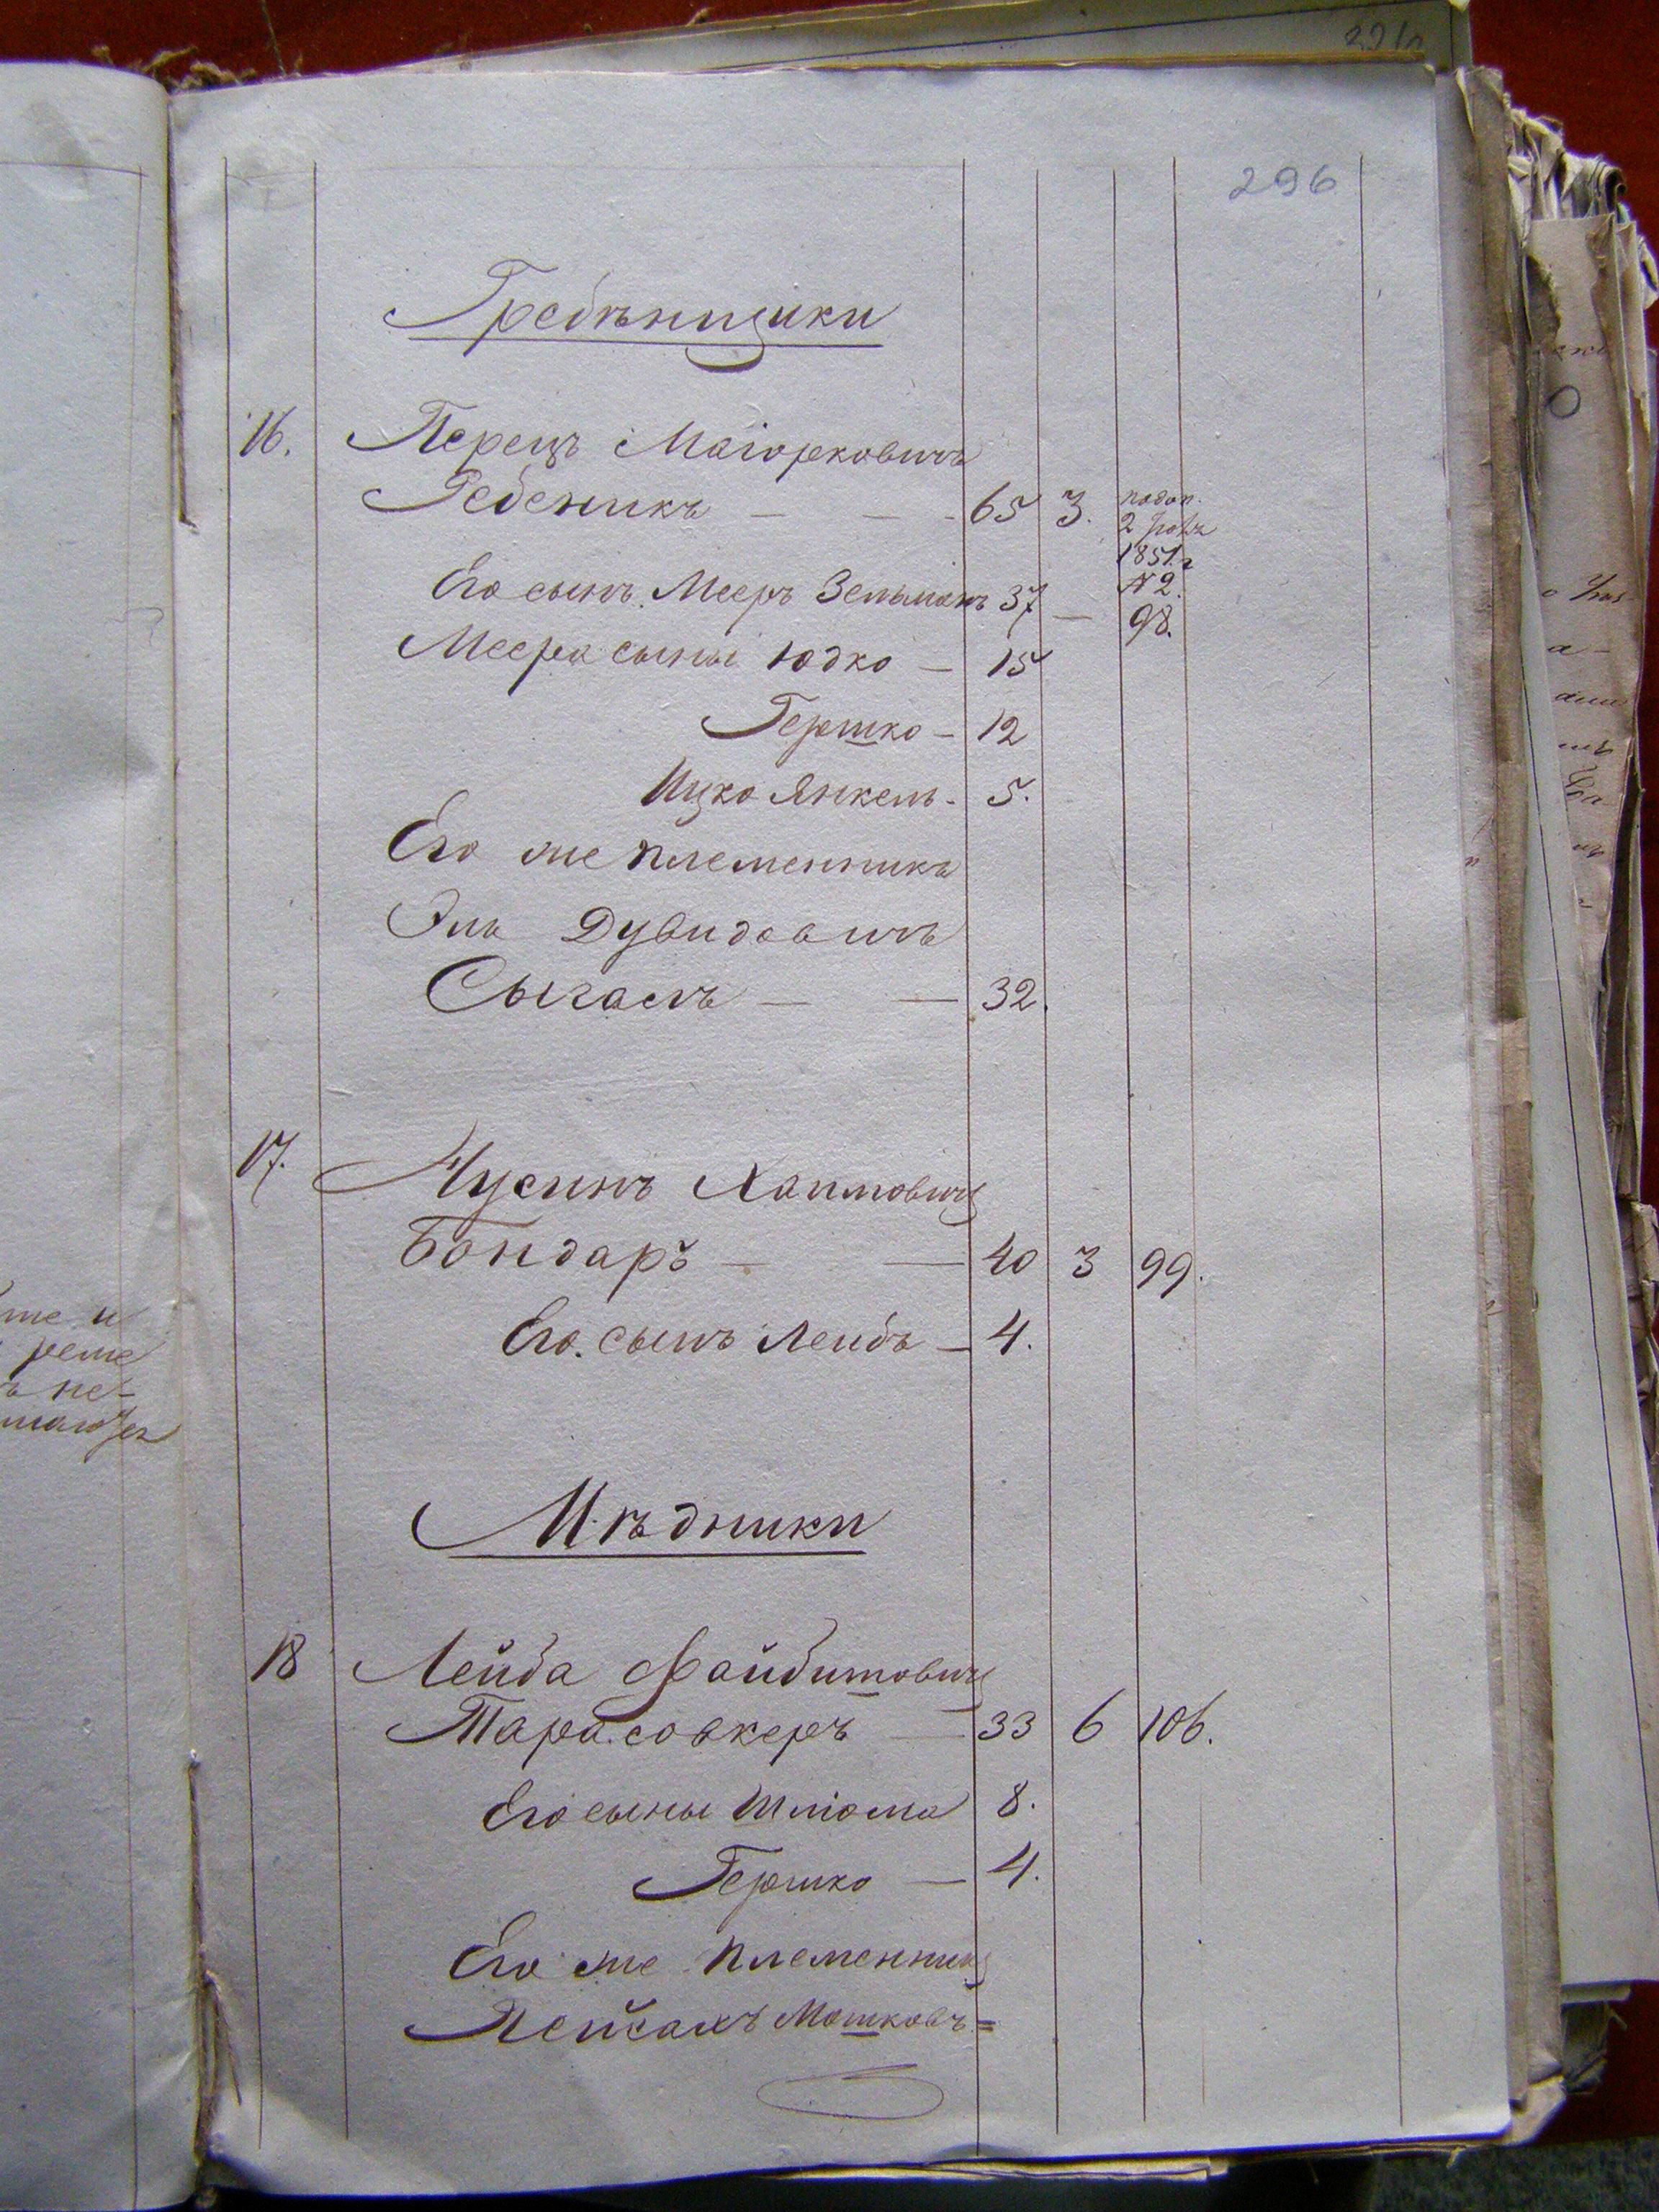 296
Гребѣнщики
16. Перецъ Маіорковичъ
Гебеникъ — — - 65 3. подоп.
2 1851.г
№ 2.
Его сынъ Мееръ Зельманъ 37 — 98.
Меера сыны Юдко — 15
Гершко — 12
Ицко Янкель - 5.
Его же племенникъ
Эль Дувидовичъ
Сыгалъ — — 32.
17. Нусинъ Хаимовичъ
Бондаръ — — 40 3 99.
Его сынъ Лейбъ — 4.
Мѣдники
18 Лейба Файбишовичъ
Тарасовкеръ — 33 6 106.
Его сыны Шліома 8.
Гершко — 4.
Его же племенникъ
Пейсахъ Мошковъ =
ше и
реше
ъ не-